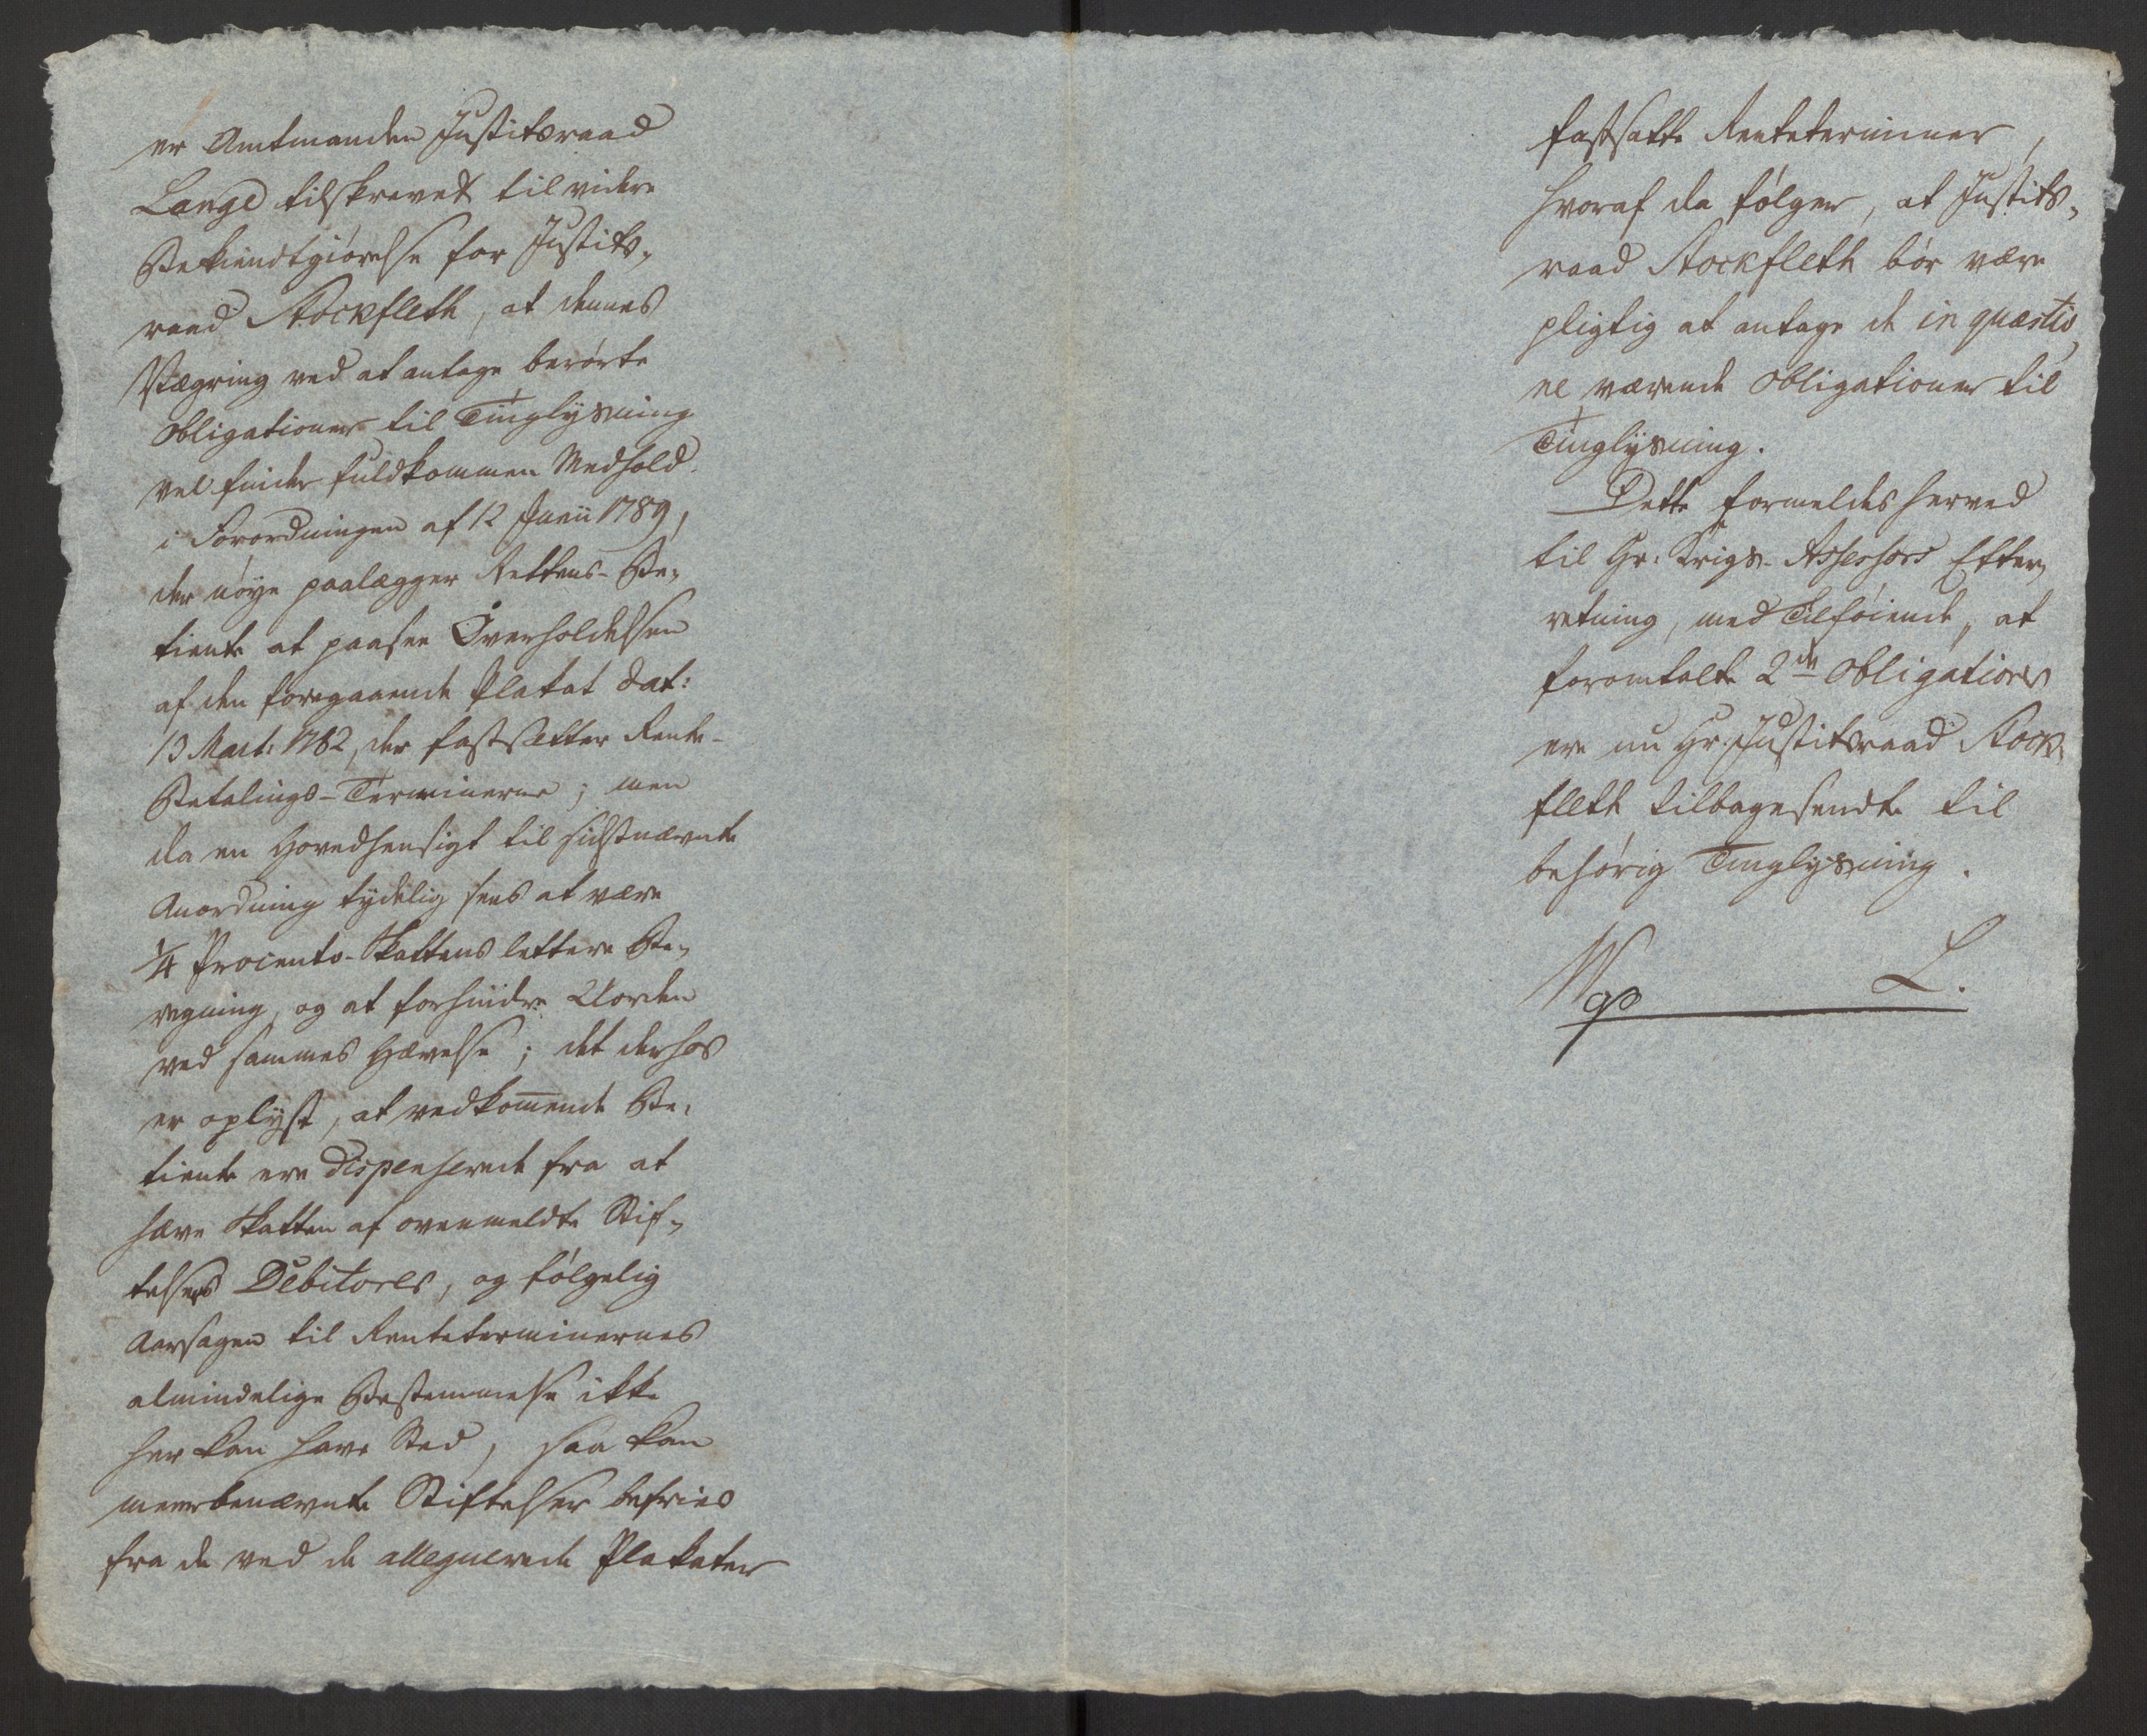 er Amtmanden Justitsraad
Lange tilskrevet til videre
Bekiendtgiørelse for Justits-
raad Stockfleth, at dennes
Vægring ved at antage berørte
Obligationer til Tinglysning
vel finder fuldkommen Medhold
i Forordningen af 12 Junii 1789,
der nøye paalægger Rettens-Be-
tiente at paasee Overholdelsen
af den foregaaende Plakat dat:
13 Mart: 1782, der fastsætter Rente-
Betalings-Terminerne; men
da en Hovedhensigt til sidstnævnte
Anordning tydelig sees at være
1/4 Procento-Skattens lettere Be-
regning, og at forhindre Uorden
ved sammes Hævelse; det derhos
er oplyst, at vedkommende Be-
tiente ere dispenserede fra at
hæve Skatten af ovenmeldte Stif-
telsers Debitores, og følgelig
Aarsagen til Renteterminernes
almindelige Bestemmelse ikke
her kan have Sted, saa kan
meerbenævnte Stiftelser befries
fra de ved de alleguerede Plakater
fastsatte Renteterminer,
hvoraf da følger, at Justits-
raad Stockfleth bør være
pligtig at antage de in quæstio-
ne værende Obligationer til
Tinglysning.
Dette formeldes herved
til Hr: Krigs-Assessors Efter-
retning, med Tilføiende, at
foromtalte 2de Obligationer
ere nu Hr. Justitsraad Stock-
fleth tilbagesendte til
behørig Tinglysning.
L.